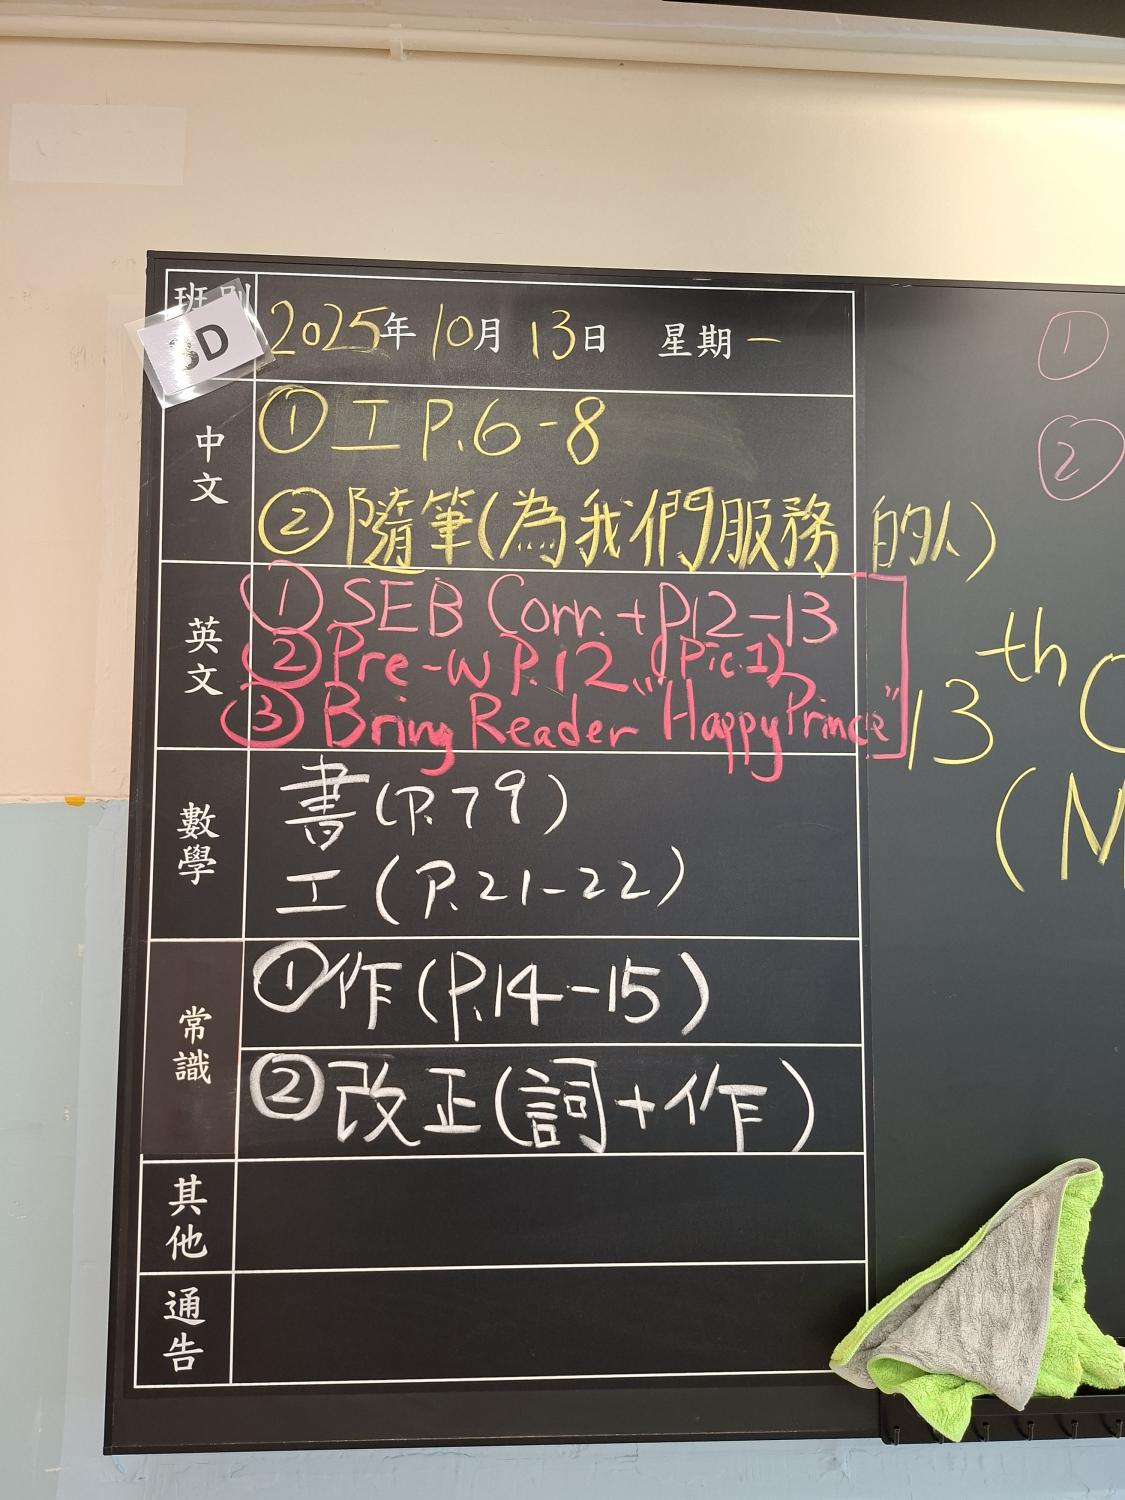 班別
D
2025年 10月 13日 星期一
中文
① 工 P.6-8
② 隨筆(為我們服務的人)
英文
① SEB Corr. + P.12-13
② Pre-w P.12 (Pic.1)
③ Bring Reader "Happy Prince"
數學
書(P.79)
工(P.21-22)
常識
① 作(P.14-15)
② 改正(詞+作)
其他
通告
①
②
13th
(M